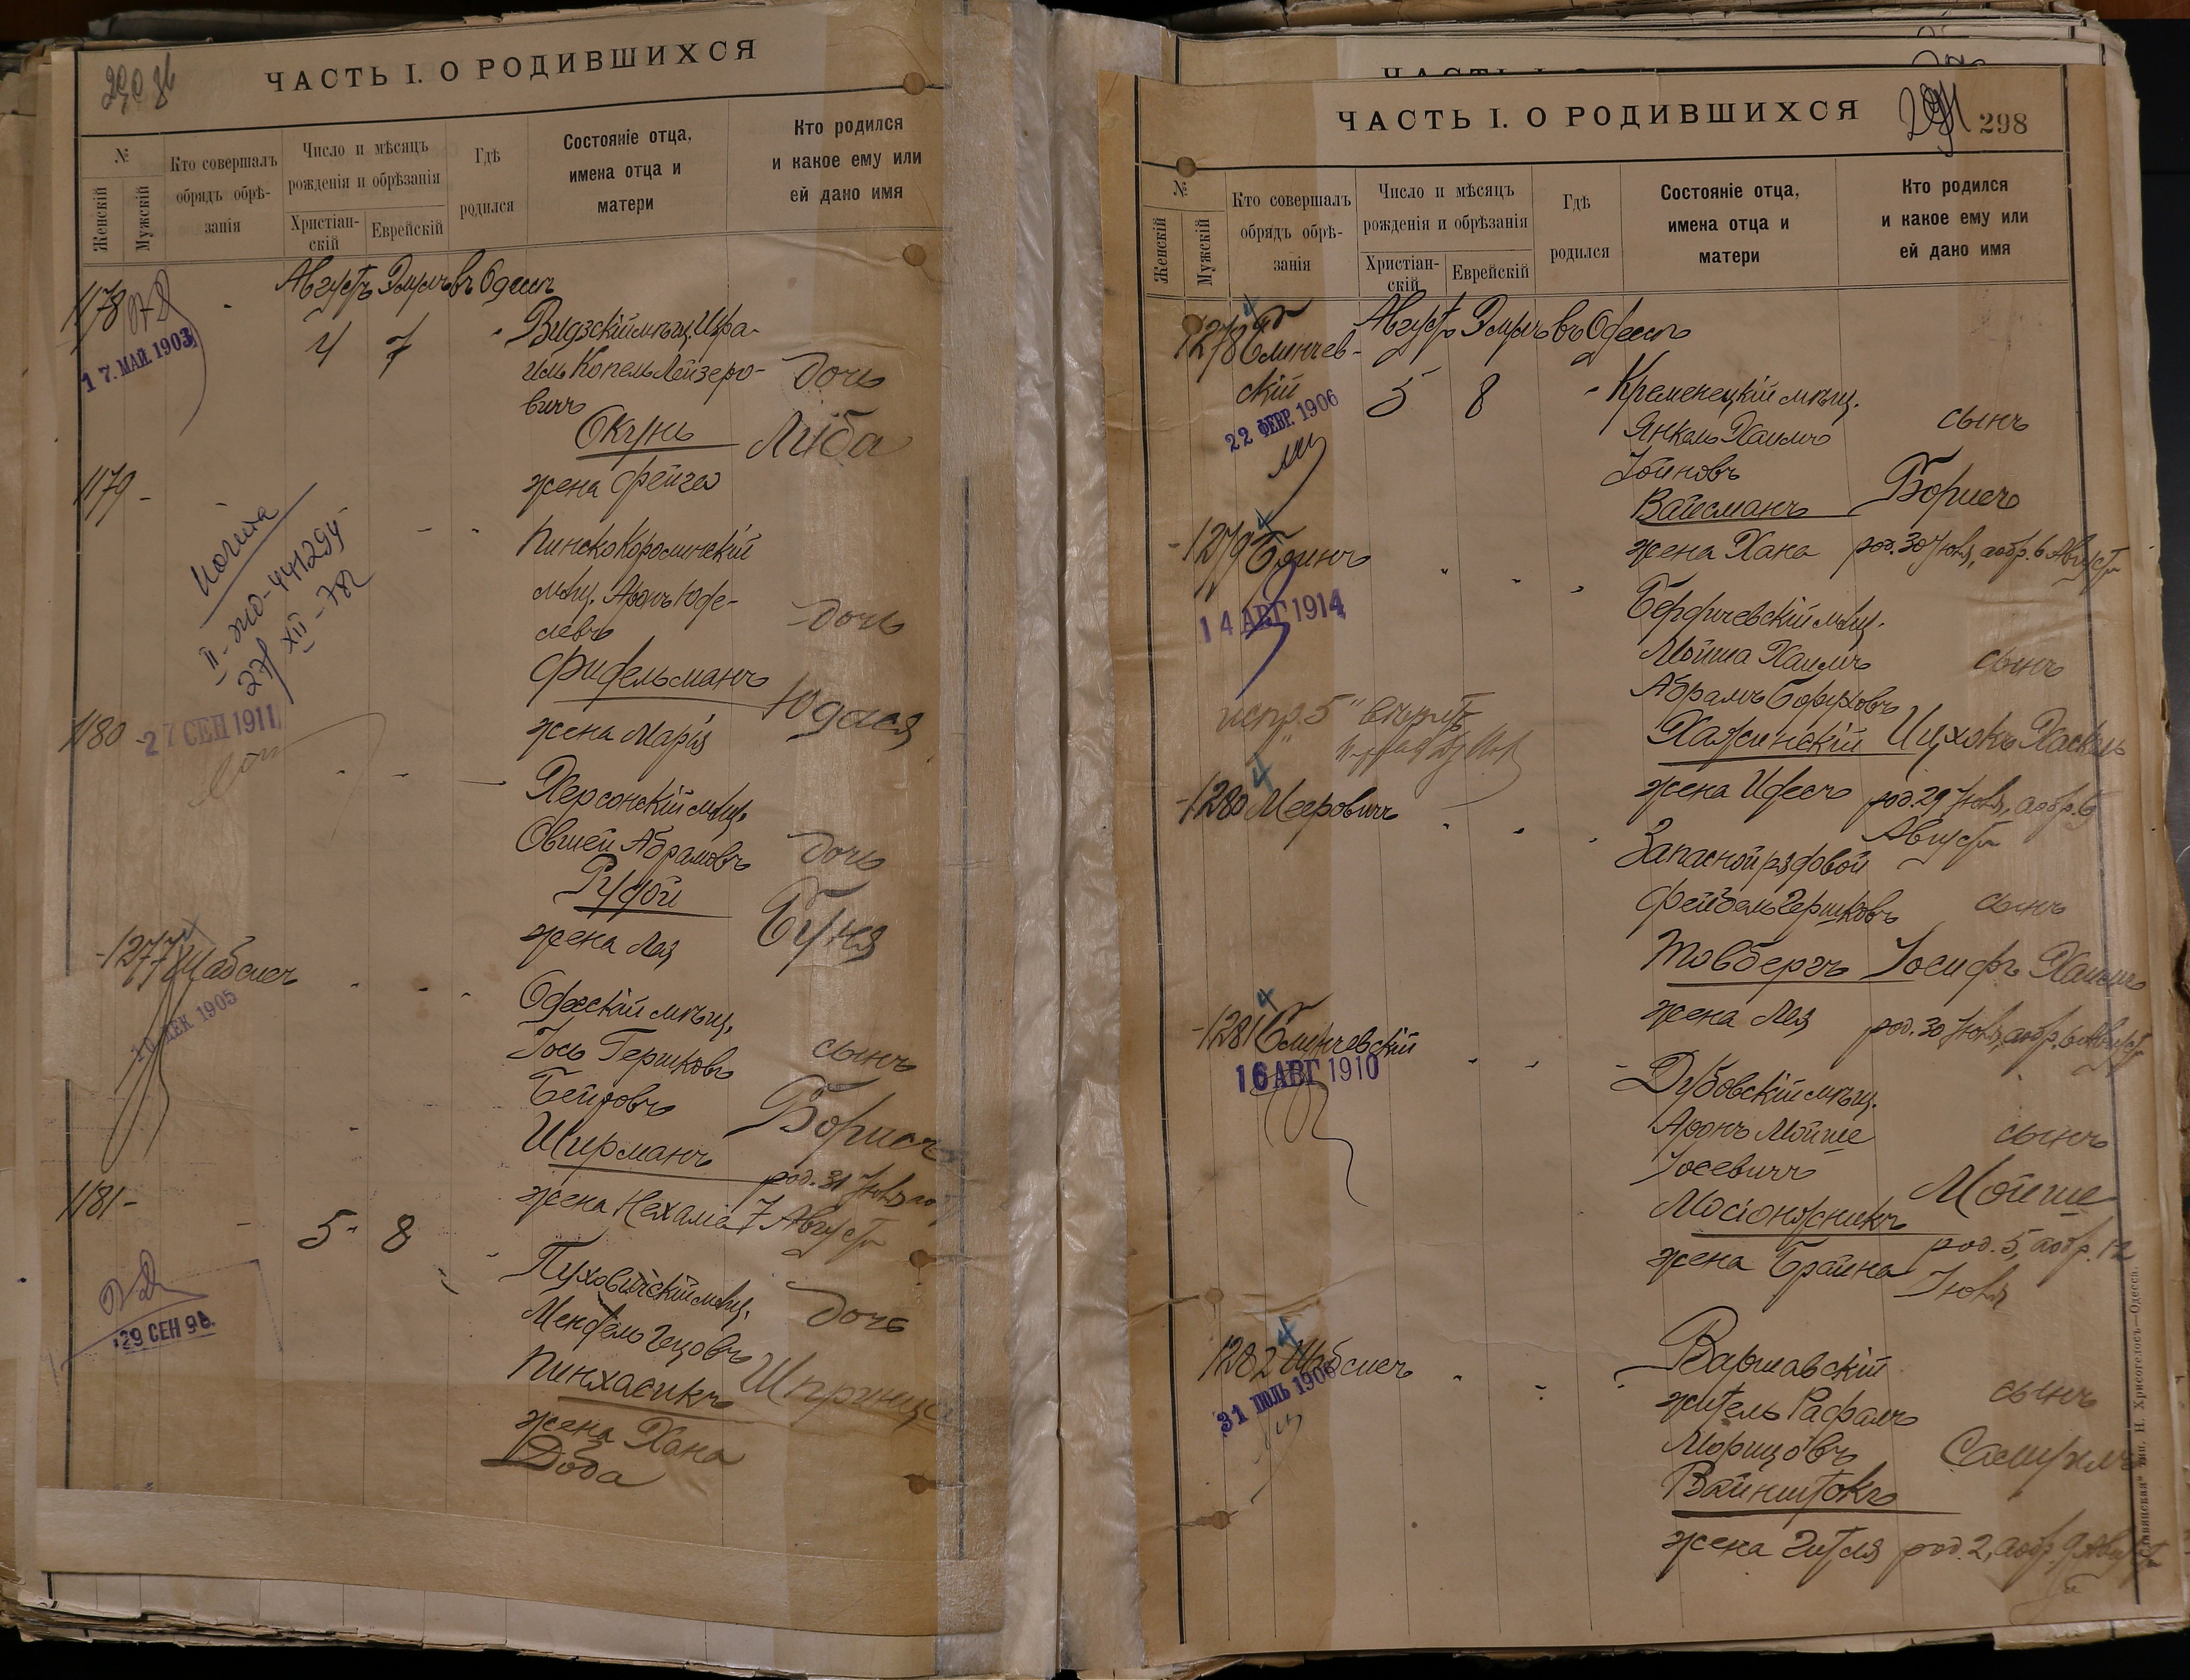 290
ЧАСТЬ I. О РОДИВШИХСЯ
№
Женскій
Мужскій
Кто совершалъ обрядъ обрѣ-
занія
Число и мѣсяцъ
рожденія и обрѣзанія
Христіан-
скій
Еврейскій
Гдѣ
родился
Состояніе отца,
имена отца и
матери
Кто родился
и какое ему или
ей дано имя
Августъ Элулъ въ Одессѣ
1178
17. МАЙ 1903
4 7
Видзскій мѣщ. Изра-
иль Копель Лейзеро-
вичъ
Окунь
жена Фейга
дочь
Либа
1179 -
копия
II-жо-441294
27/XII-78г
Пинско Королинскій
мѣщ. Аронъ Юде-
левъ
Фидельманъ
жена Марія
дочь
Юдася
1180 -
27 СЕН 1911
Херсонскій мѣщ.
Овшей Абрамовъ
Рудой
жена Лея
дочь
Буня
-1277 Шабсисъ
ДЕК 1905
Одесскій мѣщ.
Іось Гершковъ
Бейровъ
Ширманъ
жена Нехама
сынъ
Борисъ
род. 31 Іюля
7 Августа
1181 -
5 8
29 СЕН 98.
Пуховичскій мѣщ.
Мендель Гецовъ
Пинхасикъ
жена Хана
Доба
дочь
Шпринца
ЧАСТЬ I. О РОДИВШИХСЯ
298
№
Женскій
Мужскій
Кто совершалъ
обрядъ обрѣ-
занія
Число и мѣсяцъ
рожденія и обрѣзанія
Христіан-
скій
Еврейскій
Гдѣ
родился
Состояніе отца,
имена отца и
матери
Кто родился
и какое ему или
ей дано имя
Августъ Элулъ въ Одессѣ
4
1278 Слинчев-
скій
22 ФЕВР. 1906
5 8
Кременецкій мѣщ.
Янкель Хаимъ
Іойновъ
Вайсманъ
жена Хана
сынъ
Борисъ
род. 30 Іюля, а обр. 6 Августа
4
-1279 Блинъ
14 АВГ 1914
испр. 5" вѣрить
Бердичевскій мѣщ.
Мойша Хаимъ
Абрамъ Боруховъ
Хажинскій
жена Идесъ
сынъ
Ицхокъ Хаскель
род. 29 Іюля, а обр. 5
Августа
4
-1280 Мееровичъ
Запасной рядовой
Фейбель Гершковъ
Товбергъ
жена Лея
сынъ
Іосифъ Хаимъ
род. 30 Іюля, а обр. 6 Августа
4
-1281 Слинчевскій
16 АВГ 1910
Дубовскій мѣщ.
Аронъ Мойше
Іосевичъ
Мосіонжникъ
жена Брайна
сынъ
Мойше
род. 5, а обр. 12
Іюля
4
1282 Шабсисъ
31 ІЮЛЬ 1906
Варшавскій
житель Рафалъ
Морицовъ
Вайнштокъ
жена Гитля
сынъ
Самуилъ
род. 2, а обр. 9 Августа
тип. Н. Хрисогелосъ—Одесса.